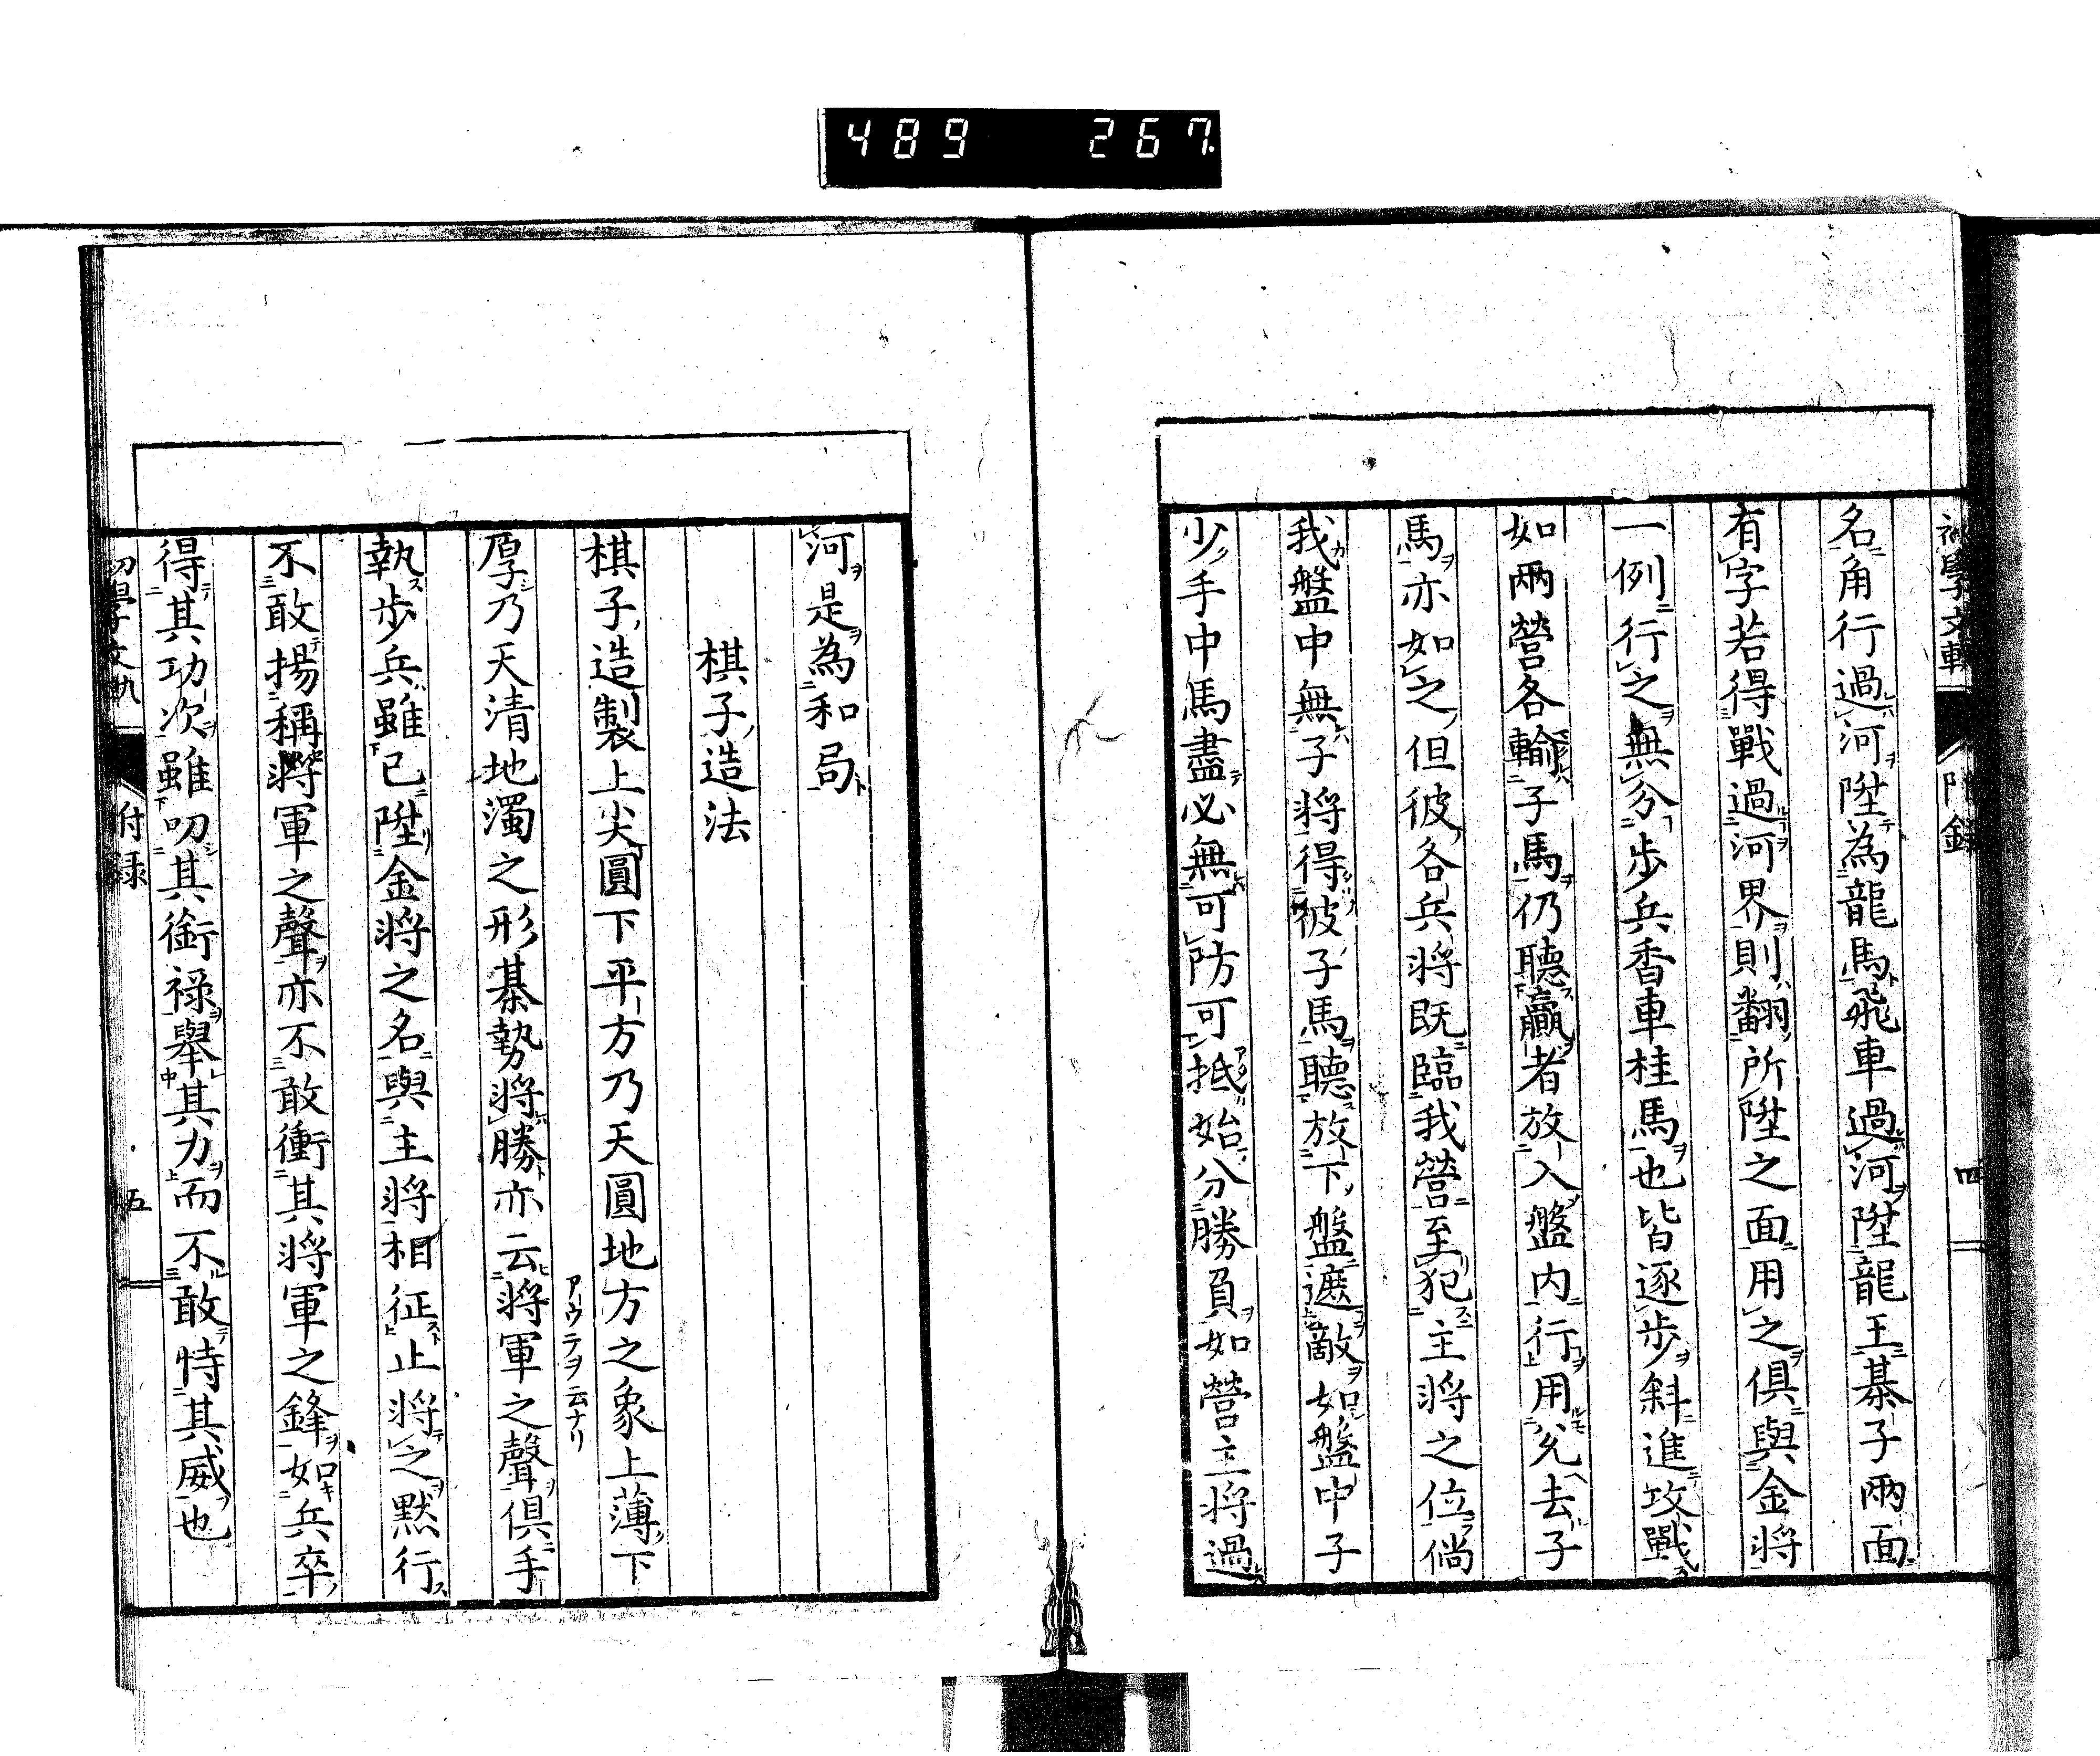 489 267
名角行過河陞為龍馬飛車過河陞龍王棊子兩面
有字若得戰過河界則翻所陞之面用之俱與金将
一例行之無分步兵香車桂馬也皆逐步斜進攻戰
如兩營各輸子馬仍聽贏者放入盤内行用兊去子
馬亦如之但彼各兵将既臨我營至犯主将之位倘
我盤中無子将得彼子馬聽放下盤遮敵如盤中子
少手中馬盡必無可防可抵始分勝負如營主将過
四
河是為和局
棋子造法
棋子造製上尖圓下平方乃天圓地方之象上薄下
厚乃天清地濁之形棊勢将勝亦云将軍之聲俱手
アウテヲ云ナリ
執步兵雖已陞金将之名與主将相征止将之黙行
不敢揚稱將軍之聲亦不敢衝其将軍之鋒如兵卒
得其功次雖叨其銜祿舉其力而不敢恃其威也
初學文軌 付録 五